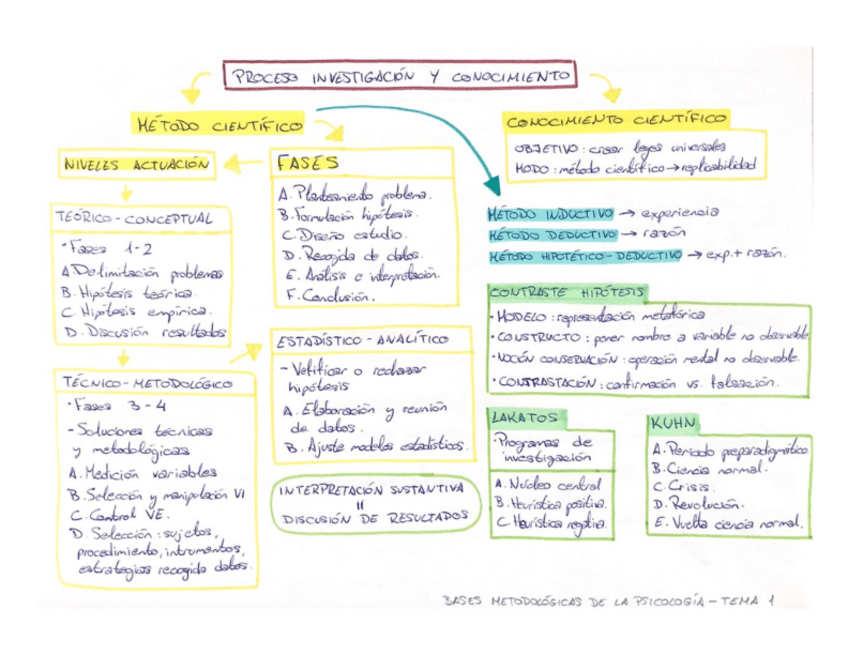 PROCESO INVESTIGACIÓN Y CONOCIMIENTO
MÉTODO CIENTÍFICO
NIVELES ACTUACIÓN
TEÓRICO-CONCEPTUAL
· Fases 1-2
A. Delimitación problemas
B. Hipótesis teórica.
C. Hipótesis empírica.
D. Discusión resultados
TÉCNICO-METODOLÓGICO
· Fases 3-4
- Soluciones técnicas
y metodológicas
A. Medición variables
B. Selección y manipulación VI
C. Control VE.
D. Selección: sujetos,
procedimiento, intrumentos,
estrategias recogida datos.
FASES
A. Planteamiento problema.
B. Formulación hipótesis.
C. Diseño estudio.
D. Recogida de datos.
E. Análisis e interpretación.
F. Conclusión.
ESTADÍSTICO-ANALÍTICO
- Verificar o rechazar
hipótesis
A. Elaboración y reunión
de datos.
B. Ajuste modelos estadísticos.
INTERPRETACIÓN SUSTANTIVA
=
DISCUSIÓN DE RESULTADOS
CONOCIMIENTO CIENTÍFICO
OBJETIVO: crear leyes universales
MODO: método científico → replicabilidad
MÉTODO INDUCTIVO → experiencia
MÉTODO DEDUCTIVO → razón
MÉTODO HIPOTÉTICO-DEDUCTIVO → exp.+ razón.
CONTRASTE HIPÓTESIS
· MODELO: representación metafórica
· CONSTRUCTO: poner nombre a variable no observable
· NOCIÓN CONSERVACIÓN: operación mental no observable.
· CONTRASTACIÓN: confirmación vs. falsación.
LAKATOS
· Programas de
investigación
A. Núcleo central
B. Heurística positiva.
C. Heurística negativa.
KUHN
A. Período preparadigmático
B. Ciencia normal.
C. Crisis.
D. Revolución.
E. Vuelta ciencia normal.
BASES METODOLÓGICAS DE LA PSICOLOGÍA - TEMA 1